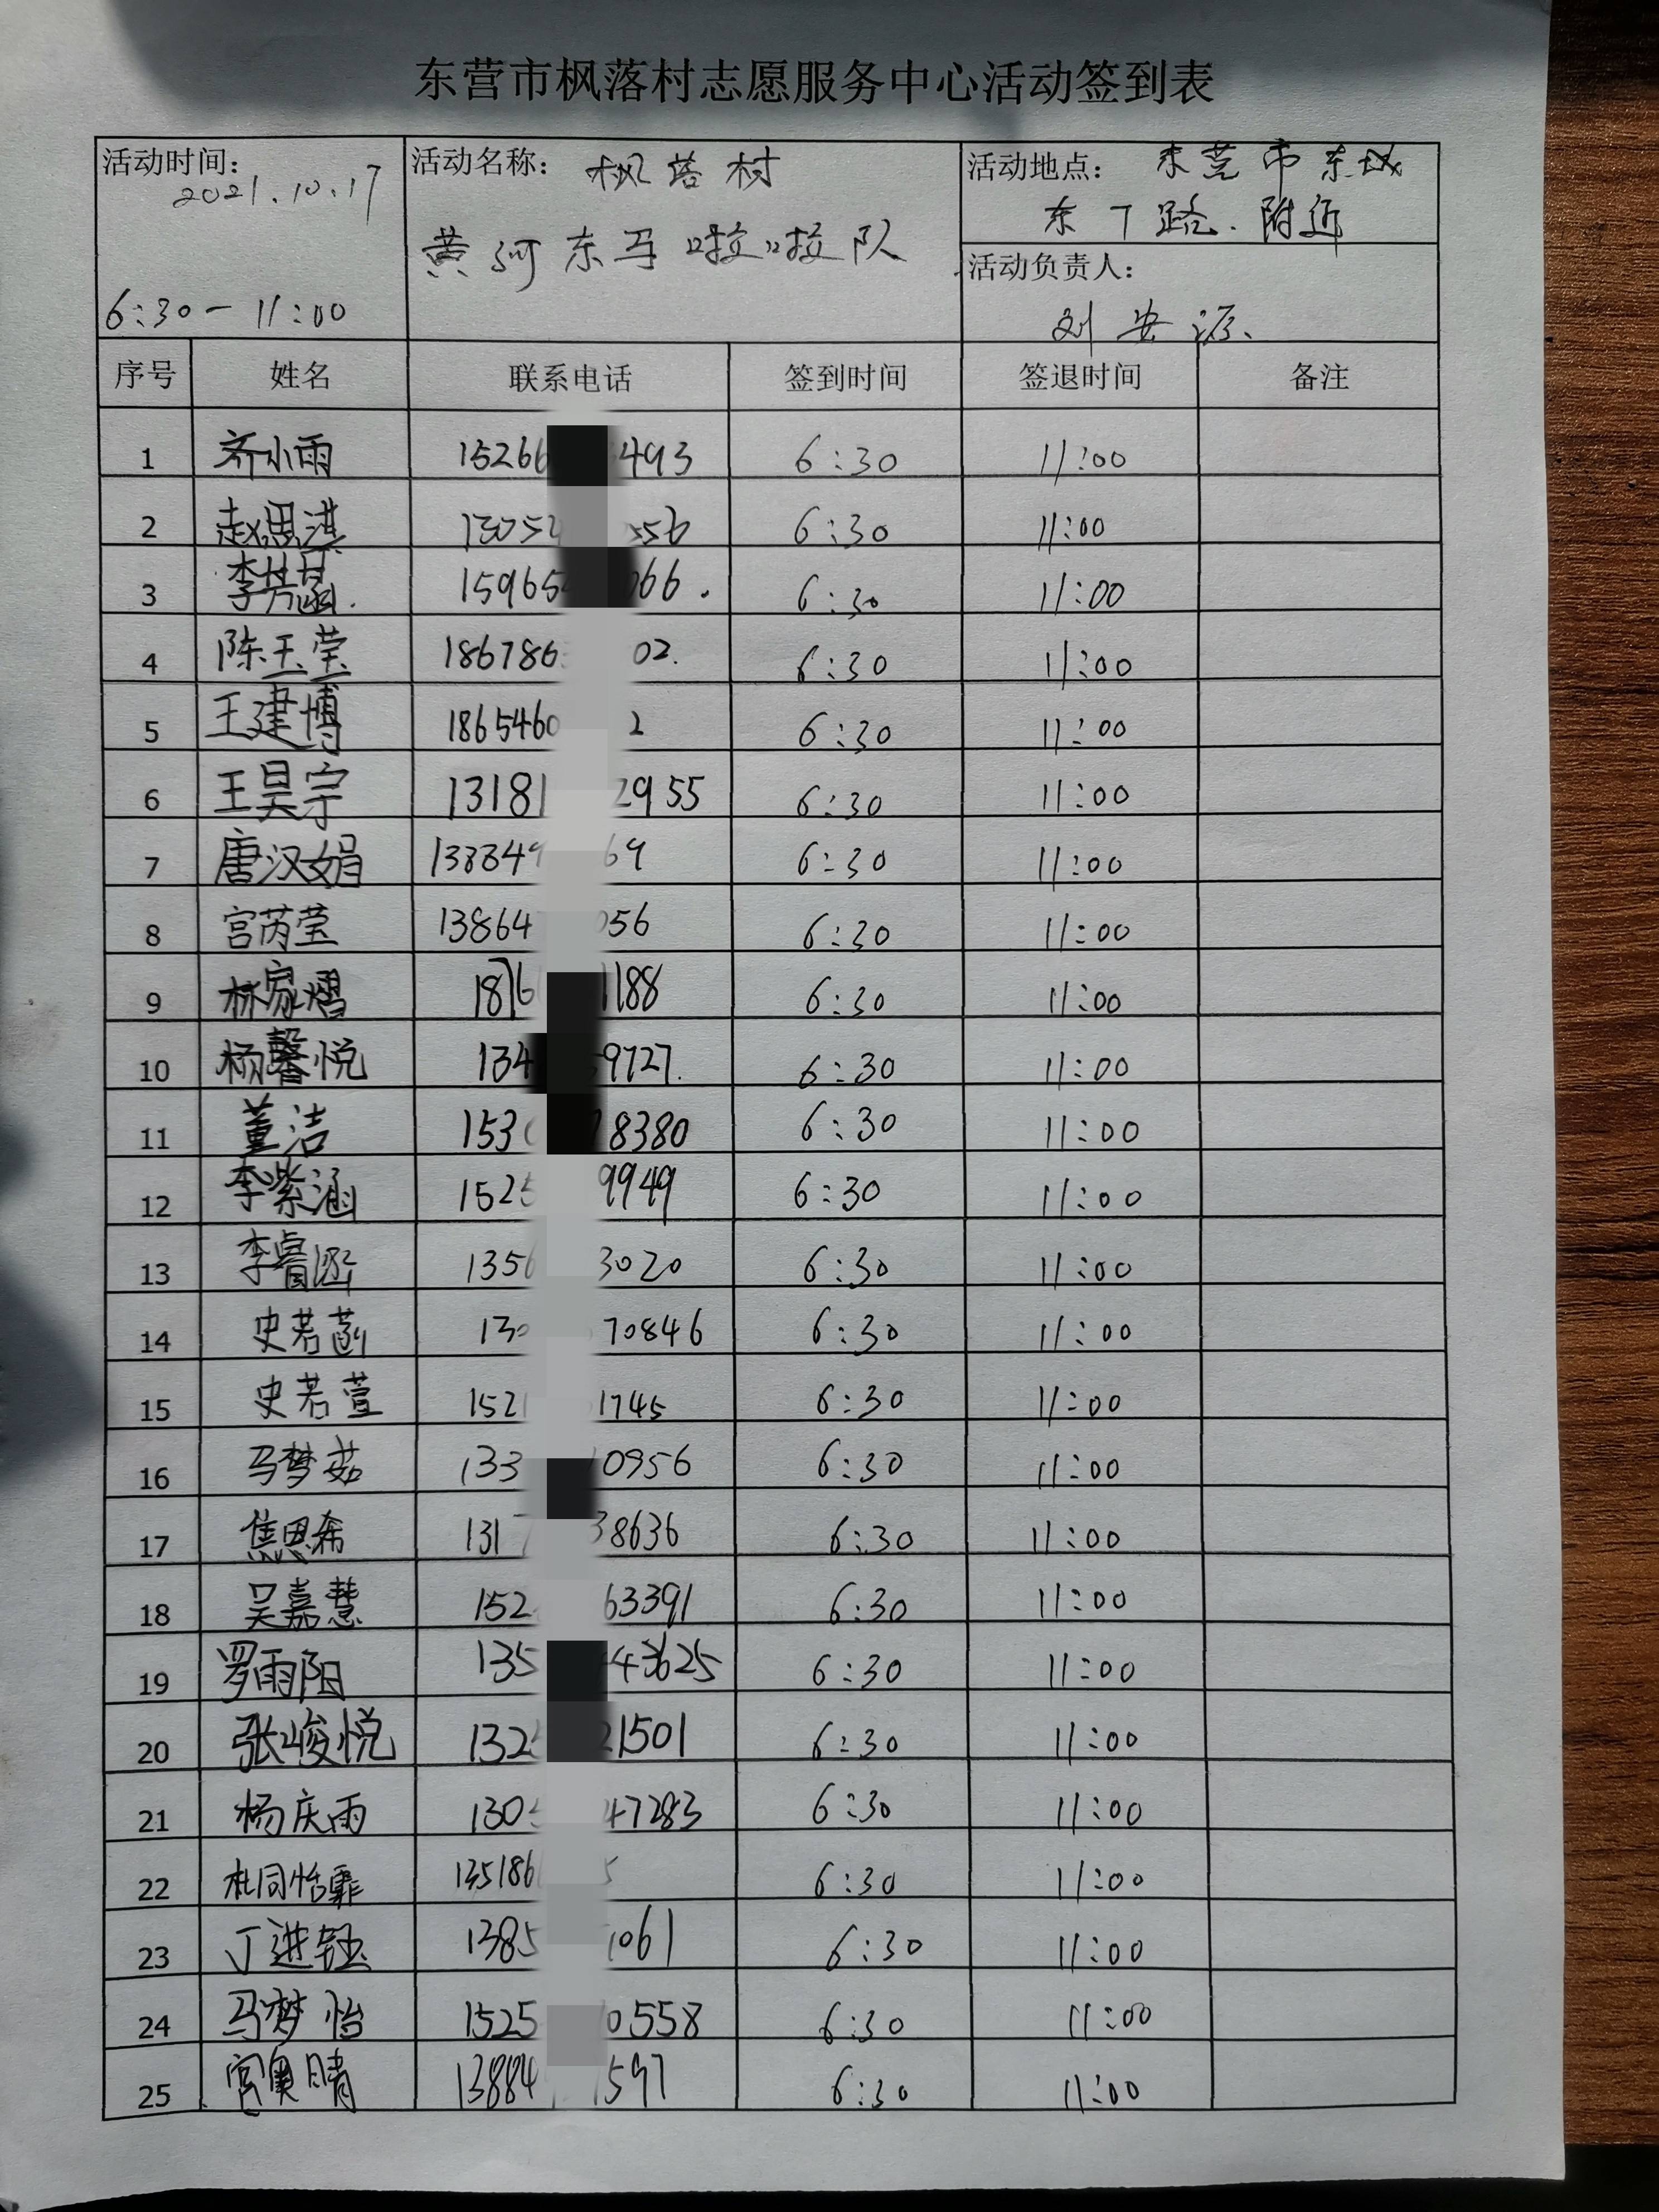 东营市枫落村志愿服务中心活动签到表
活动时间: 2021.10.17
6:30-11:00
活动名称: 枫落村
黄河东马啦啦队
活动地点: 东莞市东城
东丁路.附近
活动负责人:
刘安源
序号 姓名 联系电话 签到时间 签退时间 备注
1 齐小雨 15266 493 6:30 11:00
2 赵思淇 13054 556 6:30 11:00
3 李芳菡. 15965 066. 6:30 11:00
4 陈玉莹 186786 02. 6:30 11:00
5 王建博 1865460 2 6:30 11:00
6 王昊宗 13181 2955 6:30 11:00
7 唐汉娟 133349 69 6:30 11:00
8 宫芮莹 13864 056 6:30 11:00
9 林家熠 1876 1188 6:30 11:00
10 杨馨悦 134 9727. 6:30 11:00
11 董洁 153 8380 6:30 11:00
12 李紫涵 1525 9949 6:30 11:00
13 李睿涵 1356 3020 6:30 11:00
14 史若菡 130 70846 6:30 11:00
15 史若萱 1521 1745 6:30 11:00
16 马梦茹 133 0956 6:30 11:00
17 焦思希 131 38636 6:30 11:00
18 吴嘉慧 152 63391 6:30 11:00
19 罗雨阳 135 43625 6:30 11:00
20 张峻悦 132 21501 6:30 11:00
21 杨庆雨 130 47283 6:30 11:00
22 杜同恬霏 135186 5 6:30 11:00
23 丁进钰 1385 1061 6:30 11:00
24 马梦怡 1525 0558 6:30 11:00
25 宫奥晴 13884 1597 6:30 11:00